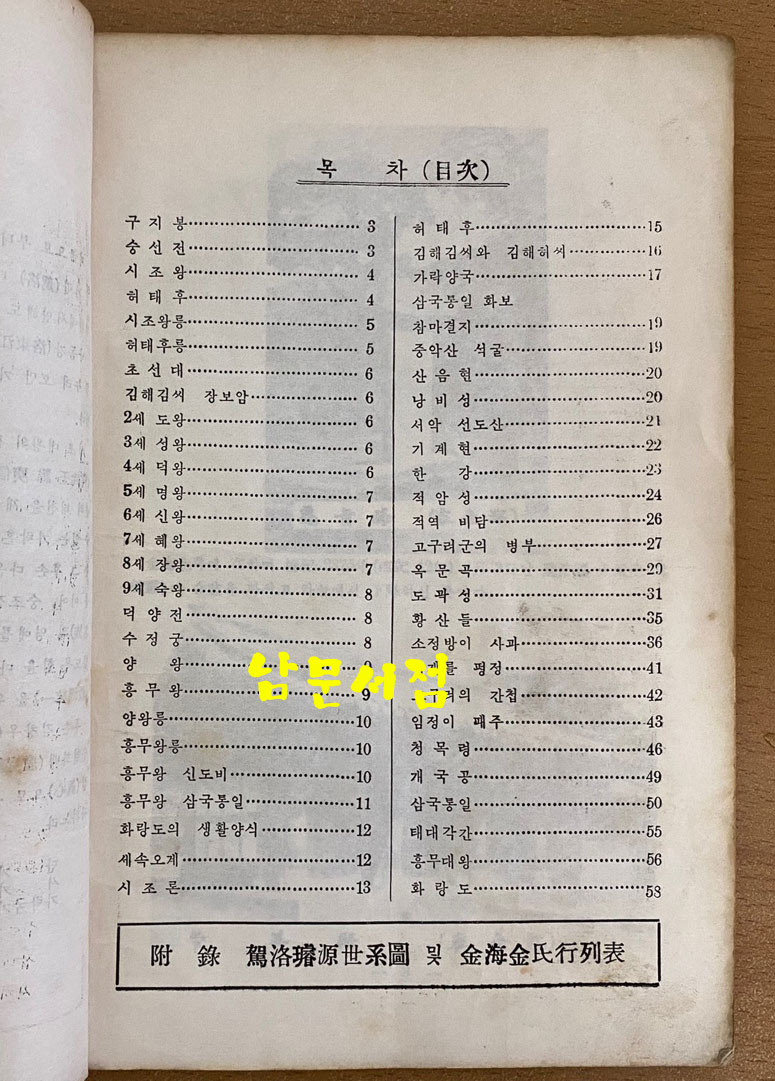 목 차 (目次)
구 지 봉 3
숭 선 전 3
시 조 왕 4
허 태 후 4
시조왕릉 5
허태후릉 5
초 선 대 6
김해김씨 장보암 6
2세 도왕 6
3세 성왕 6
4세 덕왕 6
5세 명왕 7
6세 신왕 7
7세 혜왕 7
8세 장왕 7
9세 숙왕 8
덕 양 전 8
수 정 궁 8
양 왕 9
흥 무 왕 9
양왕릉 10
흥무왕릉 10
흥무왕 신도비 10
흥무왕 삼국통일 11
화랑도의 생활양식 12
세속오계 12
시 조 론 13
허 태 후 15
김해김씨와 김해허씨 16
가락양국 17
삼국통일 화보
참마결지 19
중악산 석굴 19
산 음 현 20
낭 비 성 20
서악 선도산 21
기 계 현 22
한 강 23
적 암 성 24
적역 비담 26
고구리군의 병부 27
옥 문 곡 29
도 곽 성 31
황 산 들 35
소정방이 사과 36
를 평정 41
의 간첩 42
임정이 패주 43
청 목 령 46
개 국 공 49
삼국통일 50
태대각간 55
흥무대왕 56
화 랑 도 58
附 錄 駕洛璿源世系圖 및 金海金氏行列表
남문서점